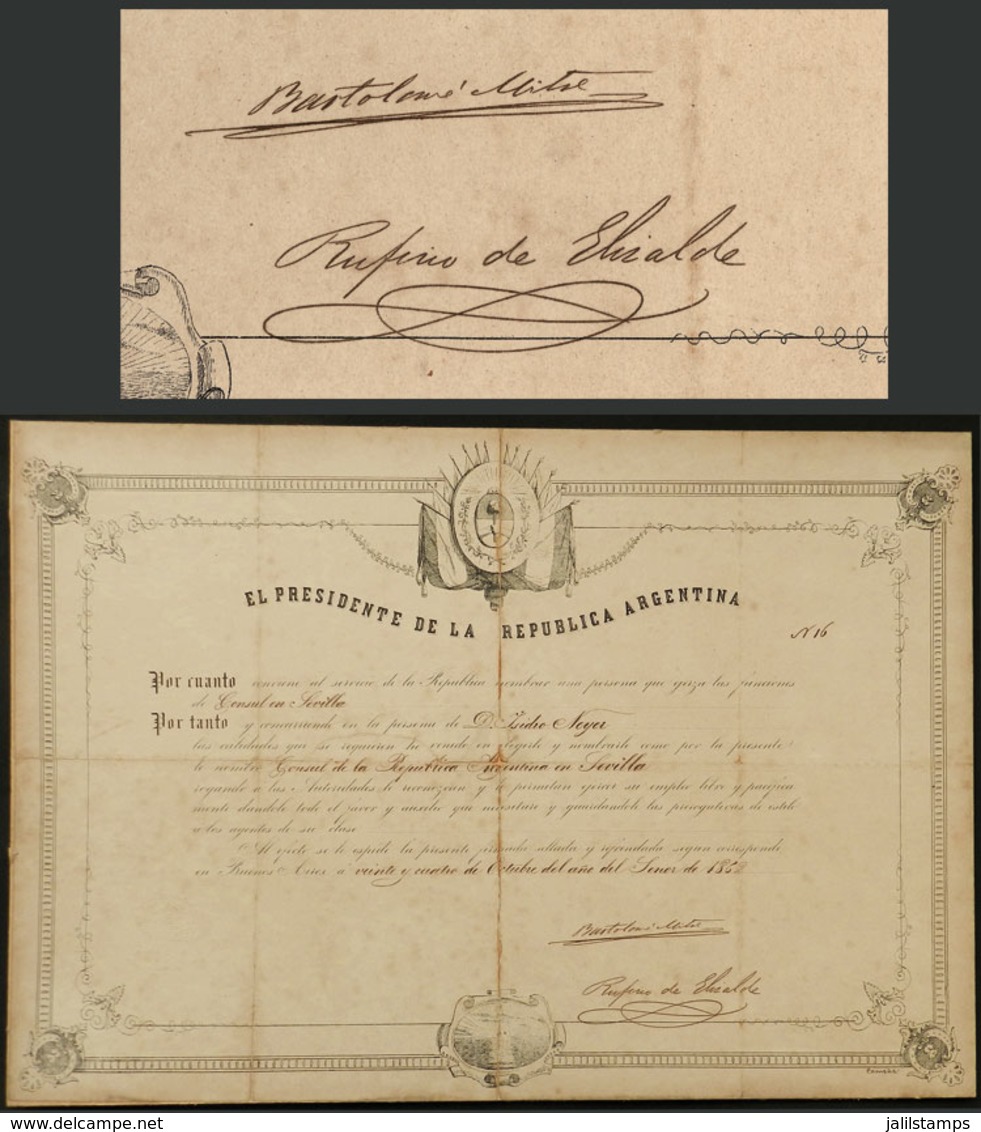 Bartolomé Mitre
Rufino de Elizalde
EL PRESIDENTE DE LA REPUBLICA ARGENTINA
N 16
Por cuanto conviene al servicio de la Republica nombrar una persona que ejerza las funciones
de Consul en Sevilla
Por tanto y concurriendo en la persona de D. Isidro Neyer
las calidades que se requieren he venido en elegirle y nombrarle como por la presente
le nombro Consul de la Republica Argentina en Sevilla
rogando a las Autoridades le reconozcan y le permitan ejercer su empleo libre y pacifica
mente dandole todo el favor y auxilio que necesitare y guardandole las prerogativas de estilo
a los agentes de su clase
Al efecto se le espide la presente firmada sellada y refrendada segun corresponde
en Buenos Aires a veinte y cuatro de Octubre del año del Señor de 1862
Bartolomé Mitre
Rufino de Elizalde
jalilstamps